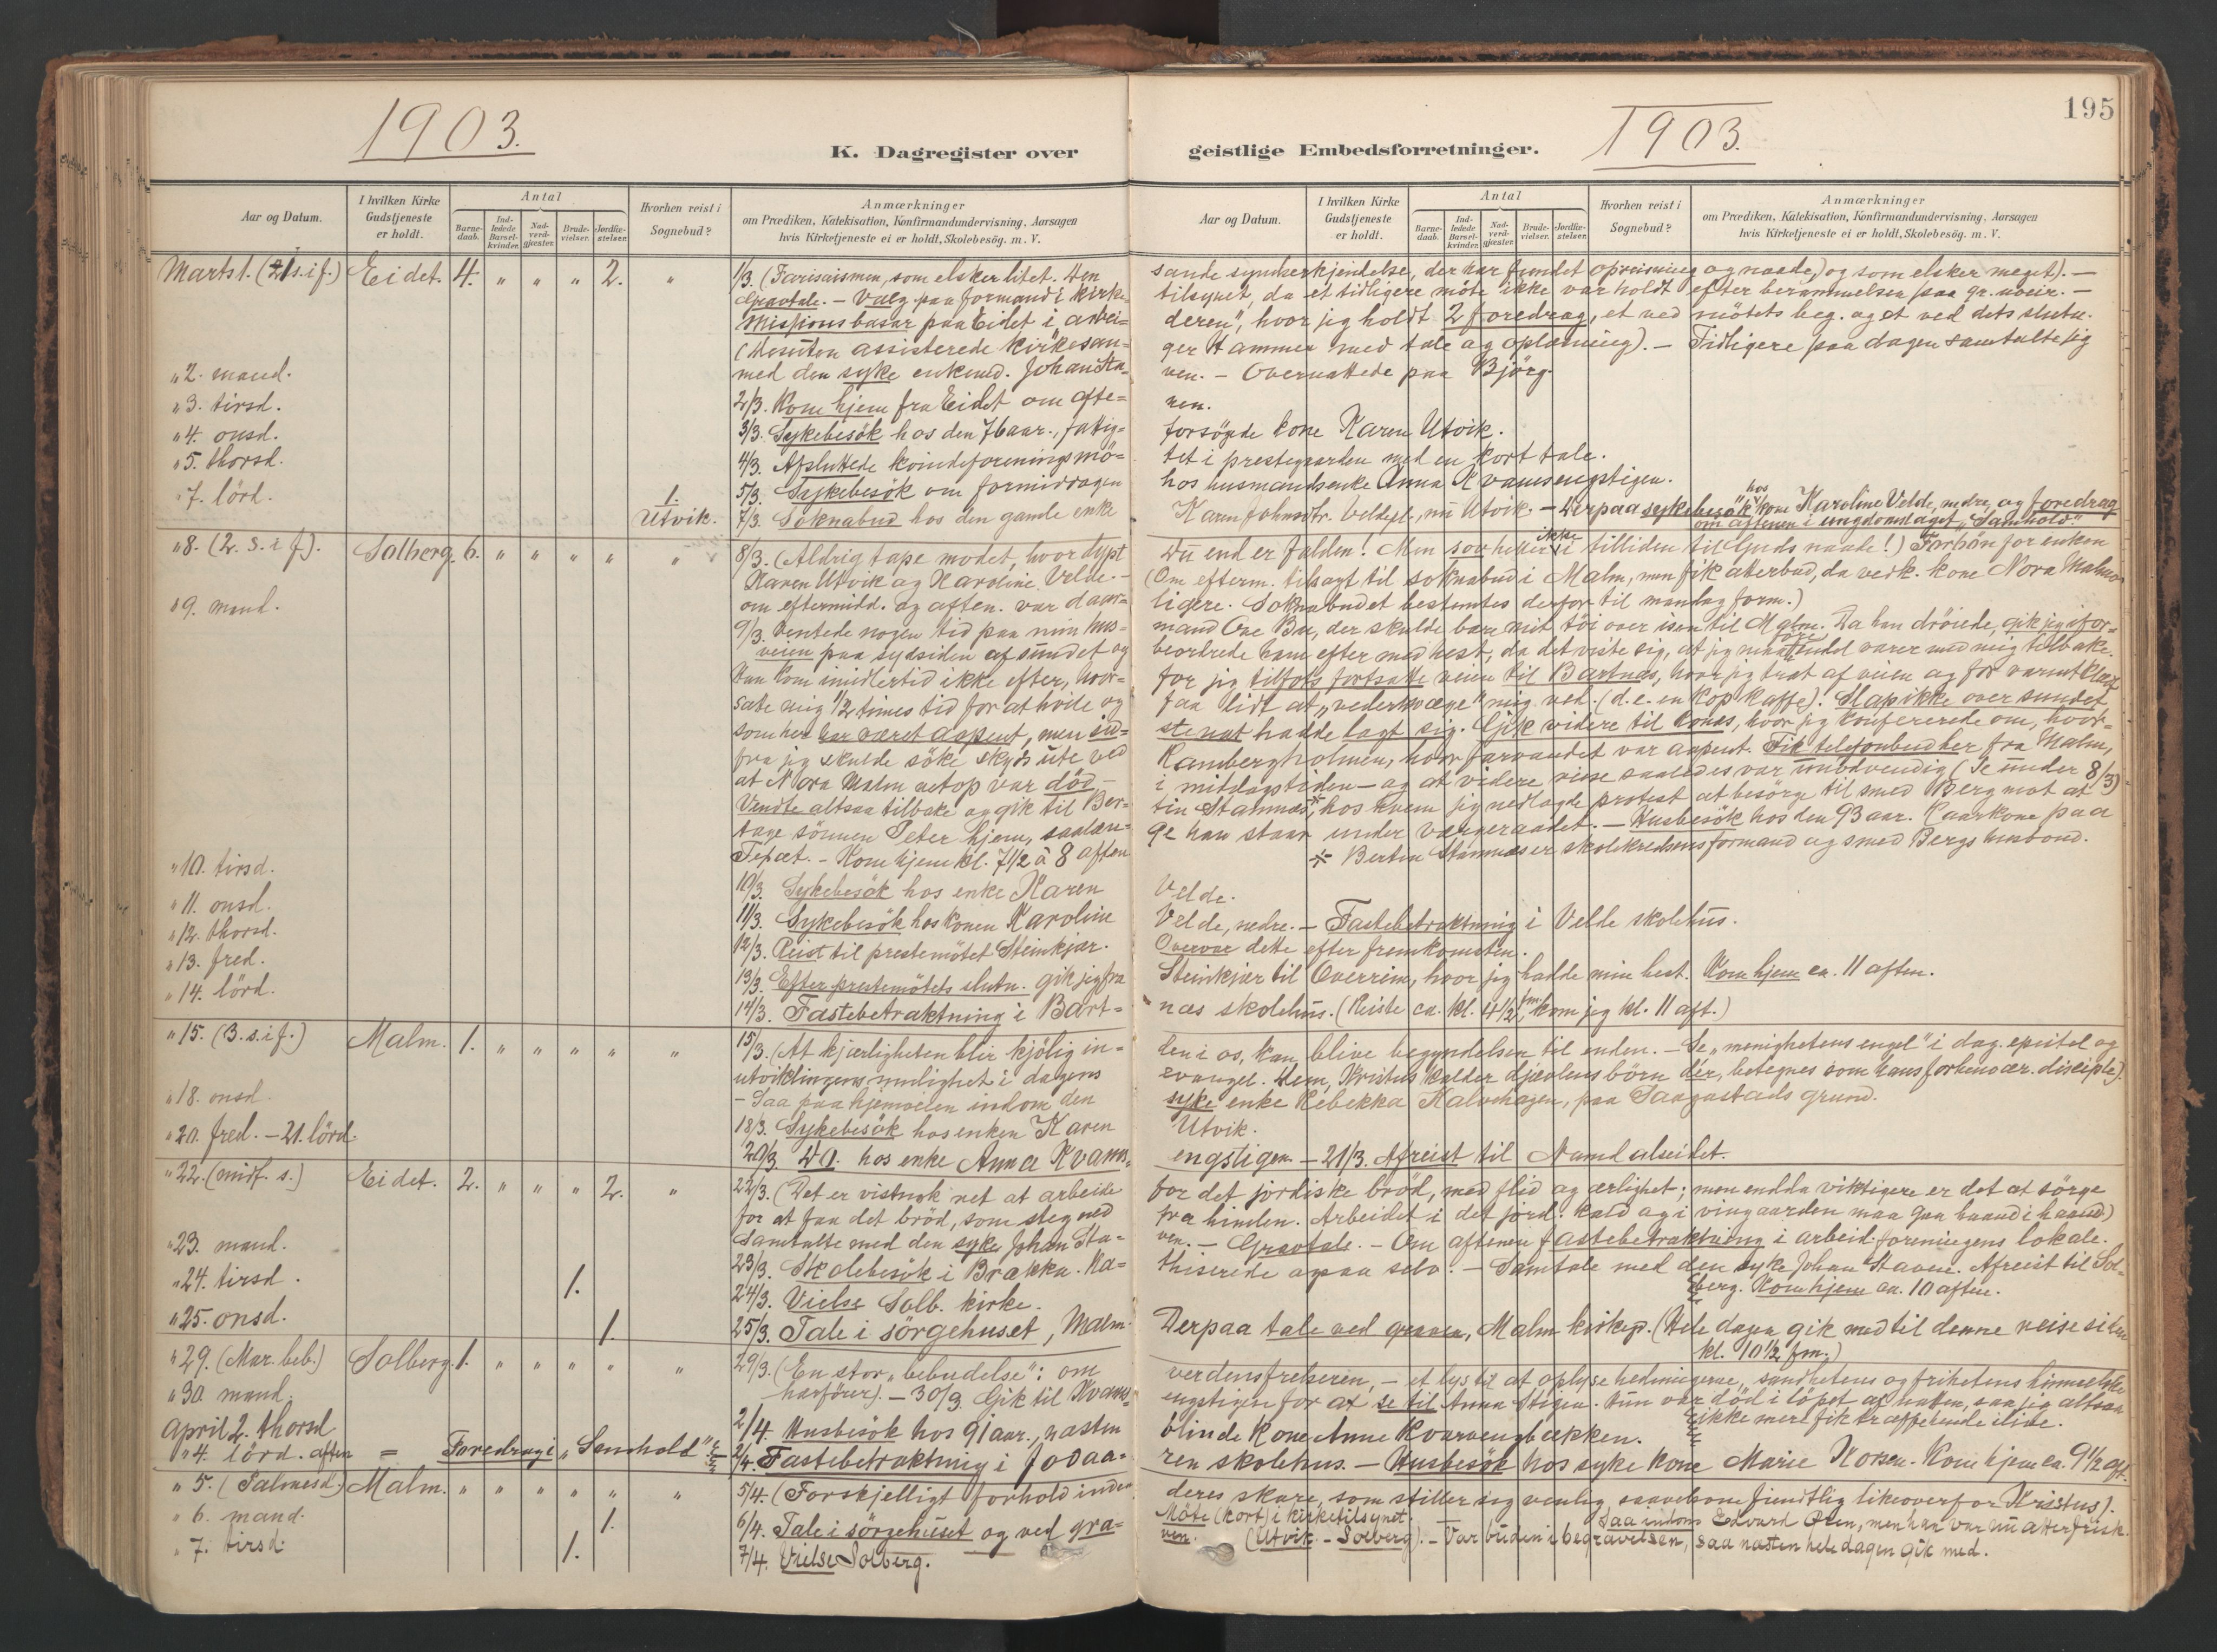 1903.
K. Dagregister over
Aar og Datum.
I hvilken Kirke
Gudstjeneste
er holdt.
Antal
Barne-
daab.
Ind-
ledede
Barsel-
kvinder.
Nad-
verd-
gjester.
Brude-
vielser.
Jordfæ-
stelser.
Hvorhen reist i
Sognebud?
Anmærkninger
om Prædiken, Katekisation, Konfirmandundervisning, Aarsagen
hvis Kirketjeneste ei er holdt, Skolebesög. m. V.
Marts 1. (1 s. i f.) Eidet. 4. „ „ „ 2. „ 1/3. (Farisaismen, som elsker litet. Den
Gravtale. – Valg paa formand i kirke-
Missionsbasar paa Eidet i „arbei-
(Desuten assisterede kirkesan-
„ 2. mand. med den syke enkemd. Johan Sta-
„ 3. tirsd. 2/3. Kom hjem fra Eidet om afte-
„ 4. onsd. 3/3. Sykebesök hos den 76 aar., fattig-
„ 5. thorsd. 4/3. Afsluttede kvindeforeningsmö-
„ 7. lörd. 1. 5/3. Sykebesök om formiddagen
Utvik. 7/3. Soknabud hos den gamle enke
„ 8. (2. s. i f.). Solberg. 6. „ „ „ „ „ 8/3. (Aldrig tape modet, hvor dypt
Karen Utvik og Karoline Velde. –
„ 9. mand. om eftermidd. og aften. var daar-
9/3. Ventede nogen tid paa min hus-
veien paa sydsiden af sundet og
Han kom imidlertid ikke efter, hvor-
satte mig 1/2 times tid for at hvile og
som her har været aapent, men sid-
fra jeg skulde söke skyds ute ved
at Nora Malm netop var död –
Vendte altsaa tilbake og gik til Ber-
tage sönnen Peter hjem, saalæn-
Tepæt. – Kom hjem kl. 7 1/2 à 8 aften
„ 10. tirsd. 10/3. Sykebesök hos enke Karen
„ 11. onsd. 11/3. Sykebesök hos konen Karoline
„ 12. thorsd. 12/3. Reist til prestemötet Steinkjær.
„ 13. fred. 13/3. Efter prestemötets slutn. gik jeg fra
„ 14. lörd. 14/3. Fastebetraktning i Bart-
„ 15. (3. s. i f.) Malm. 1. „ „ „ „ „ 15/3. (At kjærligheten blir kjölig in-
utviklingens mulighet i dagens
„ 18. onsd. – Saa paa hjemveien indom den
„ 20. fred. – 21. lörd. 18/3. Sykebesök hos enken Karen
20/3. Do. hos enke Anna Kvams-
„ 22. (midf. s.) Eidet. 2. „ „ „ 2. „ 22/3. (Det er vistnok ret at arbeide
for at faa det bröd, som steg ned
„ 23. mand. Samtalte med den syke Johan Sta-
„ 24. tirsd. 1. 23/3. Skolebesök i Brakka. Ka-
24/3. Vielse Solb. kirke.
„ 25. onsd. 1. 25/3. Tale i sörgehuset, Malm.
„ 29. (Mar. beb.) Solberg. 1. „ „ „ „ „ 29/3. (En stor „bebudelse“: om
„ 30. mand. hærförer). – 30/3. Gik til Kvams-
April 2. thorsd. 2/4. Husbesök hos 91 aar., næsten
„ 4. lörd. aften = Foredrag i „Samhold“ 2/4. Fastebetraktning i Fosaa-
„ 5. (Palmesd.) Malm. „ „ „ „ „ „ 5/4. (Forskjelligt forhold inden
„ 6. mand. 1. 6/4. Tale i sörgehuset og ved gra-
„ 7. tirsd. 1. 7/4. Vielse Solberg.
195
1903.
geistlige Embedsforretninger.
Aar og Datum.
I hvilken Kirke
Gudstjeneste
er holdt.
Antal
Barne-
daab.
Ind-
ledede
Barsel-
kvinder.
Nad-
verd-
gjester.
Brude-
vielser.
Jordfæ-
stelser.
Hvorhen reist i
Sognebud?
Anmærkninger
om Prædiken, Katekisation, Konfirmandundervisning, Aarsagen
hvis Kirketjeneste ei er holdt, Skolebesög. m. V.
sande synderkjendelse, der har fundet opreisning og naade, og som elsker meget). –
tilsynet, da et tidligere möte ikke var holdt efter berammelsen paa gr. uveir. –
deren“, hvor jeg holdt 2 foredrag, et ved mötets beg. og et ved dets slutn.
ger Hammer med tale og oplæsning). – Tidligere paa dagen samtalte jeg
ven. – Overnattede paa Björg.
nen.
forsögde kone Karen Utvik.
tet i prestegaarden med en kort tale.
hos husmandsenke Anna Kvamsengstigen.
Karen Johnsdtr. Veldepl., nu Utvik. – Derpaa sykebesök hos kone Karoline Velde, nedre, og foredrag
om aftenen i ungdomslaget „Samhold“
Du end er falden! Men sov heller ikke i tilliden til Guds naade!) Forbön for enken
(Om efterm. tilsagt til soknabud i Malm, men fik atterbud, da verk. kone Nora Malm
ligere. Soknabudet bestemtes derfor til mandag form.)
mand Ove Bu, der skulde bære mit töi over isen til Malm. Da han dröiede, gik jeg ifor-
beordrede ham efter med hest, da det viste sig, at jeg var med mig tilbake.
for jeg tilfots fortsatte veien til Bartnes, hvor jeg træt af veien og for varmt klædt
faa lidt at „vederkvæge“ mig ved. (d. e. en kop kaffe). Slap ikke over sundet
ste nat hadde lagt sig. Gik videre til hvor jeg konfererede om, hvor-
Rambergholmen, hvor farvandet var aapent. Fik telefonbud her fra Malm,
i middagstiden – og at videre reise saaledes var unödvendig (Se under 8/3)
tin Stamnes*, hos hvem jeg nedlagde protest at besörge til smed Berg mot at
ge han staar under værgeraadet. – Husbesök hos den 93 aar. kaarkone paa
* Bertin Stamnes er skolekredsens formand og smed Bergs husbond.
Velde.
Velde, nedre. – Fastebetraktning i Velde skolehus.
Overvar dette efter fremkomsten.
Steinkjær til Overrein, hvor jeg hadde min hest. Kom hjem ca. 11 aften.
nes skolehus. (Reiste ca. kl. 4 1/2 , kom jeg kl. 11 aft.)
den i os, kan blive begyndelsen til enden. – Se „menighetens engel“ i dag. epistel og
evangel. Dem, Kristus kalder djævlens börn der, betegnes som hans forhenvær. disciple).
syke enke Rebekka Kalvehagen, paa Saagastads grund.
Utvik.
engstigen – 21/3. Afreist til Namdalseidet.
for det jordiske bröd, med flid og ærlighet; men endda viktigere er det at sörge
fra himlen. Arbeidet i det jord. kald og i vingaarden maa gaa haand i haand)
ven. – Gravtale. – Om aftenen fastebetraktning i arbeid. foreningens lokale.
thiserede ogsaa selv. – Samtale med den syke Johan Staven. Afreist til Sol-
berg. Kom hjem ca. 10 aften.
Derpaa tale ved graven, Malm kirkep. (Hele dagen gik med til denne reise siden
kl. 10 1/2 fm.)
verdensfrelseren, – et lys til at oplyse hedningerne, sandhetens og frihetens himmelske
engstigen for at se til Anna Stigen. Hun var död i löpet af natten, saa jeg altsaa
ikke mer fik træffe hende ilive.
blinde kone Anne Kvarvengbakken.
ren skolehus. – Husbesök hos syke kone Marie Korsen. Kom hjem ca. 9 1/2 aft.
deres skare, som stiller sig venlig saavelsom fiendtlig likeoverfor Kristus).
Möte (kort) i kirketilsynet. – Saa indom Edvard Oren, men han var nu atter frisk.
ven. (Utvik – Solberg). – Var buden i begravelsen, saa næsten hele dagen gik med.